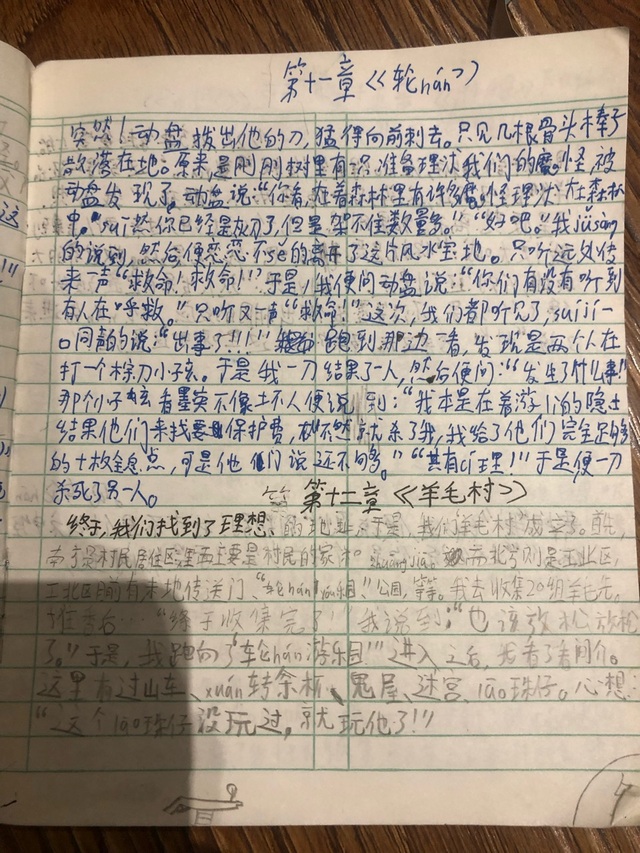 第十一章《轮hán》
突然！动盘拨出他的刀，猛得向前刺去。只见几根骨头棒子
散落在地。原来是刚刚树里有 准备理沭我们的魔怪被
动盘发现了。动盘说：“你看，在着森林里有许多魔怪理沭在森林
中。“suī然你已经是 了，但是架不住数量多。”“好吧。”我jǔ sàng
的说到，然后，便恋恋不sě的离开了这片风水宝地。只听远处传
来一声“救命！救命！”于是，我便问动盘说：“你们有没有听到
有人在呼救。”只听又一声“救命！”这次，我们都听见了，suí jí一
口同声的说：“出事了!!!” 跑到那边一看，发现是两个人在
打一个棕刀小孩。于是我一刀结果了一人，然后便问：“发生了什么事”
那个小子 看着墨实不像土不人便说到：“我本是在着游lì的隐士
结果他们来找要保护费， 不然就杀了我，我给了他们完全足够
的十枚金息点，可是他们说还不够。”“共有cǐ理！”于是便一刀
杀死了另一人。
第十二章《羊毛村》
终于，我们找到了理想的地址，于是，我们“羊毛村”成立了。首先，
南方是村民居住区，里面主要是村民的家和 而北方则是工业区，
工业区 前有末地传送门、“轮hán游乐园”、公园，等等。我去收集20组羊毛先。
推杳后…“终于收集完了！”我说到：“也该放松放松
了。”于是，我跑向了“轮hán游乐园!!!”进入之后，我看了看简介。
这里有过山车、xuán转茶杯、鬼屋、迷宫、lāo珠仔。心想：
“这个lāo珠仔没玩过，就玩他了!!”